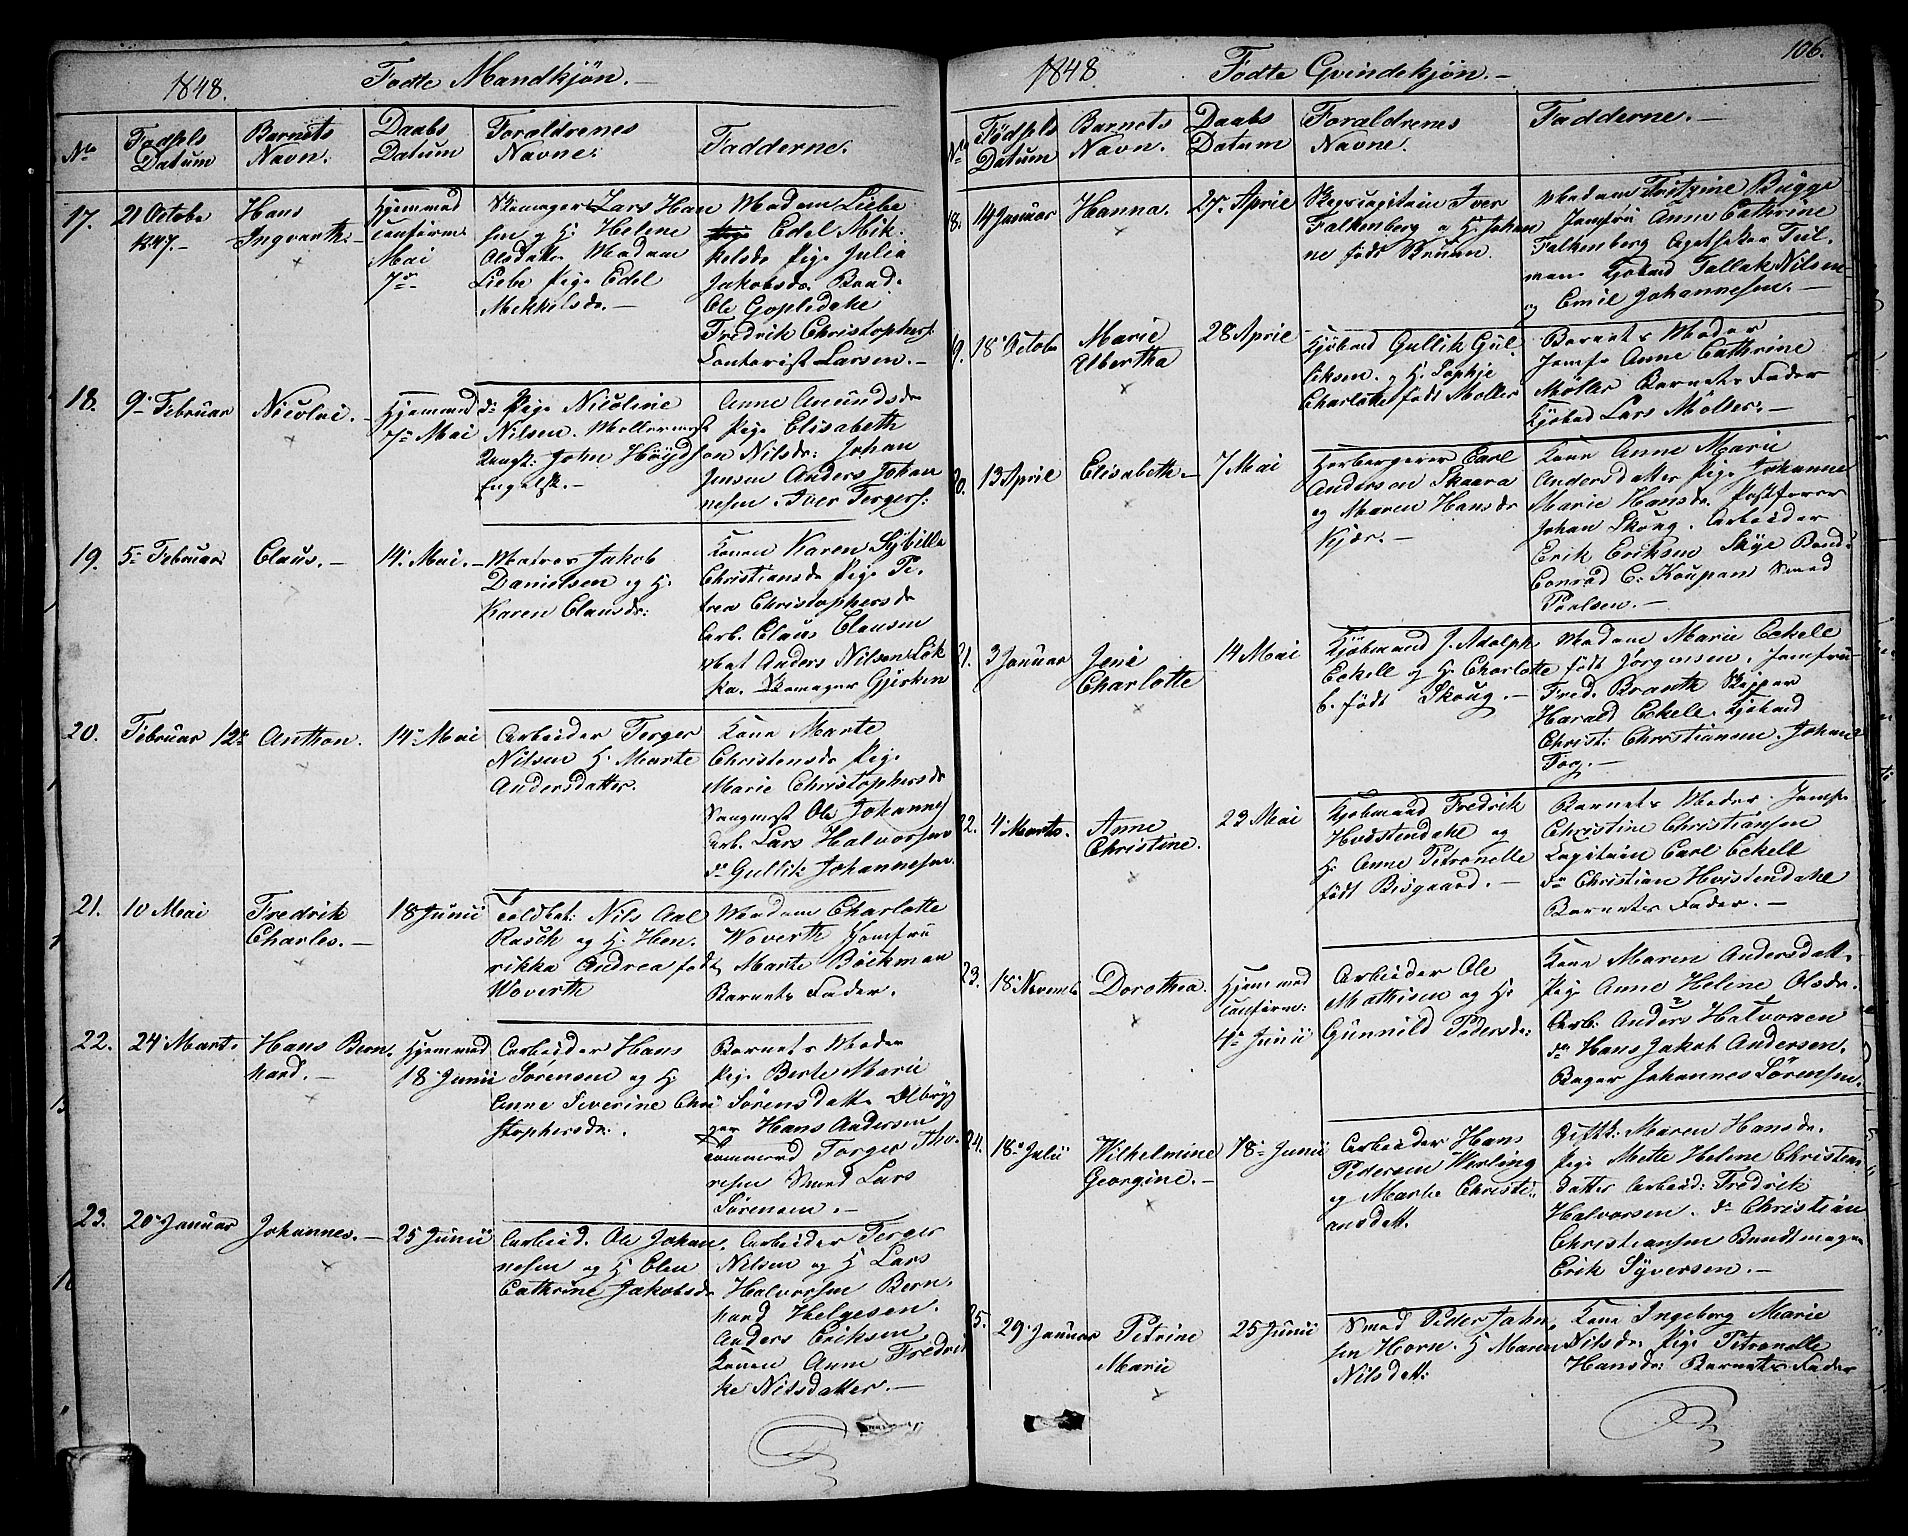 1848. Fødte Mandkjøn.-
No
Fødsels Datum
Barnets Navn.
Daabs Datum
Forældrenes Navne:
Fadderne.
17.
21 Octobr
1847.-
Hans
Ingvarth.-
Hjemmed
confirm
Mai
7de
Skomager Lars Han
sen og H. Helene
Olsdatt. Madam
Liebe Pige Edel
Mekkelsdr.-
Madam Liebe
Edel Mik-
kelsdr Pige Julia
Jakobsdr.
Ole Gopledahl
Fredrik Christophers.
Contorist Larsen.-
18.
9de Februar
Nicolai.-
Hjemmed
7de Mai
do: Pige Nicoline
Nilsen.
John Høyds
Engelsk.-
Anne Amundsdr
Pige Elisabeth
Nilsdr: Johan
Jensen Anders Johan
nesen. Iver Tergers:
19.
5te Februar
Claus.-
14de Mai.-
Matros Jakob
Danielsen og H.
Karen Clausdr:
Konen Karen Sybilla
Christiansdr Pige Pe-
trea Christophersdr
Arb. Claus Clausen
Mat Anders Nilsen Løk
ka. Skomager Gjerken
20.
Februar 12te
Anthon.
14de Mai
Arbeider Terger
Nilsen H. Marte
Andersdatter.
Kone Marte
Christensdr Pige
Marie Christophersdr
Ole Johannes
Arb. Lars Halvorsen
do Gullik Johannesen
21.
10 Mai
Fredrik
Charles.-
18 Junii
Toldbet: Nils Aal
Rasch og H. Hen-
rikka Andrea født
Woverth
Madam Charlotte
Woverth Jomfru
Marte Böckman
Barnets Fader.
22.
24de Mart.
Hans Bern-
hard.-
Hjemmed
18 Junii
Arbeider Hans
Sørensen og H.
Anne Severine Chri
stophersdr.
Barnets Moder
Pige Berte Marie
Sørensdatt. Ølbryg
ger Hans Andersen
Torger Tho-
resen Smed Lars
Sørensen.-
23.
20de Januar
Johannes.-
25 Junii
Arbeid. Ole Johan-
nesen og H. Elen
Cathrine Jakobsdr
Arbeider Terger
Nilsen og H Lars
Halvorsen Bern-
hard Helgesen.
Anders Eriksen
Konen Anne Fredrik
ke Nilsdatter.-
1848 Fødte Qvindekjøn.-
106.
No
Fødsels Datum
Barnets Navn.
Daabs Datum
Forældrenes Navne.
Fadderne.-
18.
14 Januar
Hanna.-
27de April
Skipscapitain Iver
Falkenberg og H. Johan
ne født Bruun.
Madam Fritzine Bugge
Jomfru Anne Cathrine
Falkenberg Apotheker Tul-
man Kjøbmd Tallak Nilsen
og Emil Johannesen.-
19.
18de Octobr
Marie
Albertha
28 April
Kjøbmd Gullik Gul-
liksen. og H. Sophie
Charlotte født Møller
Barnets Moder
Jomfr Anne Cathrine
Møller Barnets Fader
Kjøbmd Lars Møller.-
20.
13 April
Elisabeth.-
7 Mai
Herbergerer Carl
Anderson Skaara
og Maren Hansdr
Kjær.-
Kone Anne Marie
Andersdatter Pige Johanne
Marie Hansdr. Postfører
Johan Skoug. Arbeider
Erik Eriksen Skye
Conrad C. Koupan Smed
Poelsen.-
21.
3 Januar
Jene
Charlotte
14 Mai
Kjøbmand J. Adolph
Eckell og H. Charlotte
C. født Skoug.-
Madam Marie Eckell
født Jørgensen. Jomfru
Fred. Branth Skipper
Harald Eckell. Kjøbmd
Christ: Christiansen. Johan
Fog.-
22.
4de Marts.
Anne
Christine.
23 Mai
Kjøbmand Fredrik
Hvistendahl og
H. Anne Petronelle
født Bisgaard.-
Barnets Moder. Jomfr
Christine Christiansen
Capitain Carl Eckell
do Christian Hvistendahl
Barnets Fader.-
23.
18de Novemb
Dorothea.
Hjemmed
confirm:
4de Junii
Arbeider Ole
Mathisen og H.
Gunnild Pedersdr:
Kone Maren Andersdatt.
Pige Anne Helene Olsdr.
Arb. Anders Halvorsen
do Hans Jakob Andersen.
Bager Johannes Sørensen
24.
18de Julii
Wilhelmine
Georgine.-
18de Junii
Arbeider Hans
Pedersen Werling
og Marte Christi-
ansdatt.
Giftk: Maren Hansdr.
Pige Mette Helene Christians
datter Arbeid: Fredrik
Halvorsen. do Christian
Christiansen Bundtmager
Erik Syversen.-
25.
29de Januar
Petrine
Marie
25 Junii
Smed Peder Johan-
sen Horn. H Maren
Nilsdatt:
Kone Ingeborg Marie
Nilsdr. Pige Petronelle
Hansdr: Barnets Fader